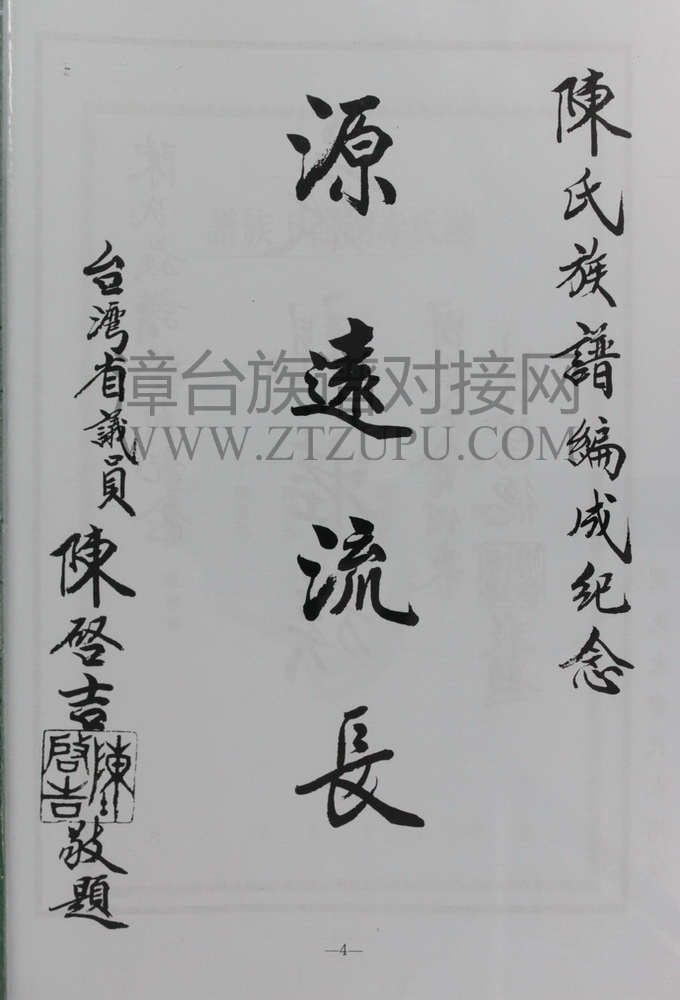 陳氏族譜編成紀念
源遠流長
台灣省議員 陳啓吉敬題
陳啓吉
漳台族谱对接网
WWW.ZTZUPU.COM
—4—